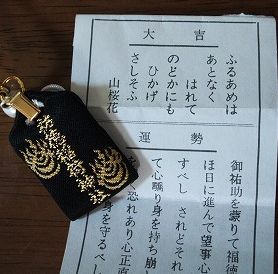 大吉
ふるあめは
あとなく
はれて
のどかにも
ひかげ
さしそふ
山桜花
運勢
御祐助を蒙りて福徳
ほ日に進んで望事
すべし されどそれ
て心驕り身を持ち崩
恐れあり心正直
身を守るべし